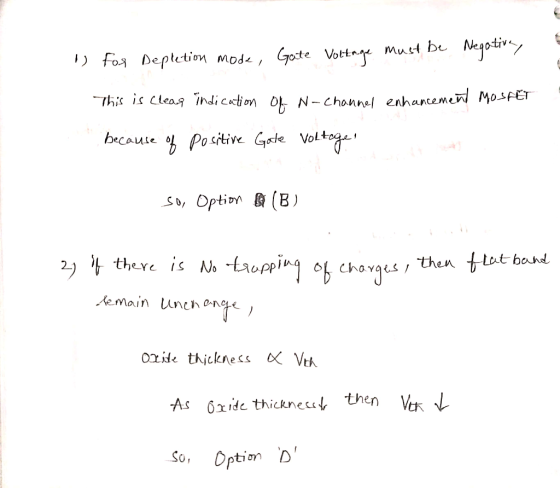 1) For Depletion mode, Gate Voltage must be Negative,
This is clear indication of N-channel enhancement MOSFET
because of Positive Gate Voltage.
So, Option (B)
2) if there is No trapping of charges, then flat band
remain unchange,
Oxide thickness ∝ Vth
As Oxide thickness↓ then Vth ↓
So, Option 'D'